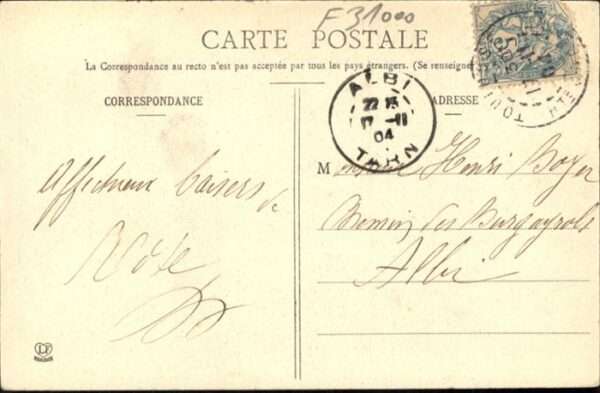 F 31000
CARTE POSTALE
La Correspondance au recto n'est pas acceptée par tous les pays étrangers. (Se renseigner
CORRESPONDANCE
ADRESSE
ALBI
22 15
17 -11
04
TARN
Affectueux baisers de
Rose
Monsieur Henri Boyer
Chemin des Burgayrols
Albi